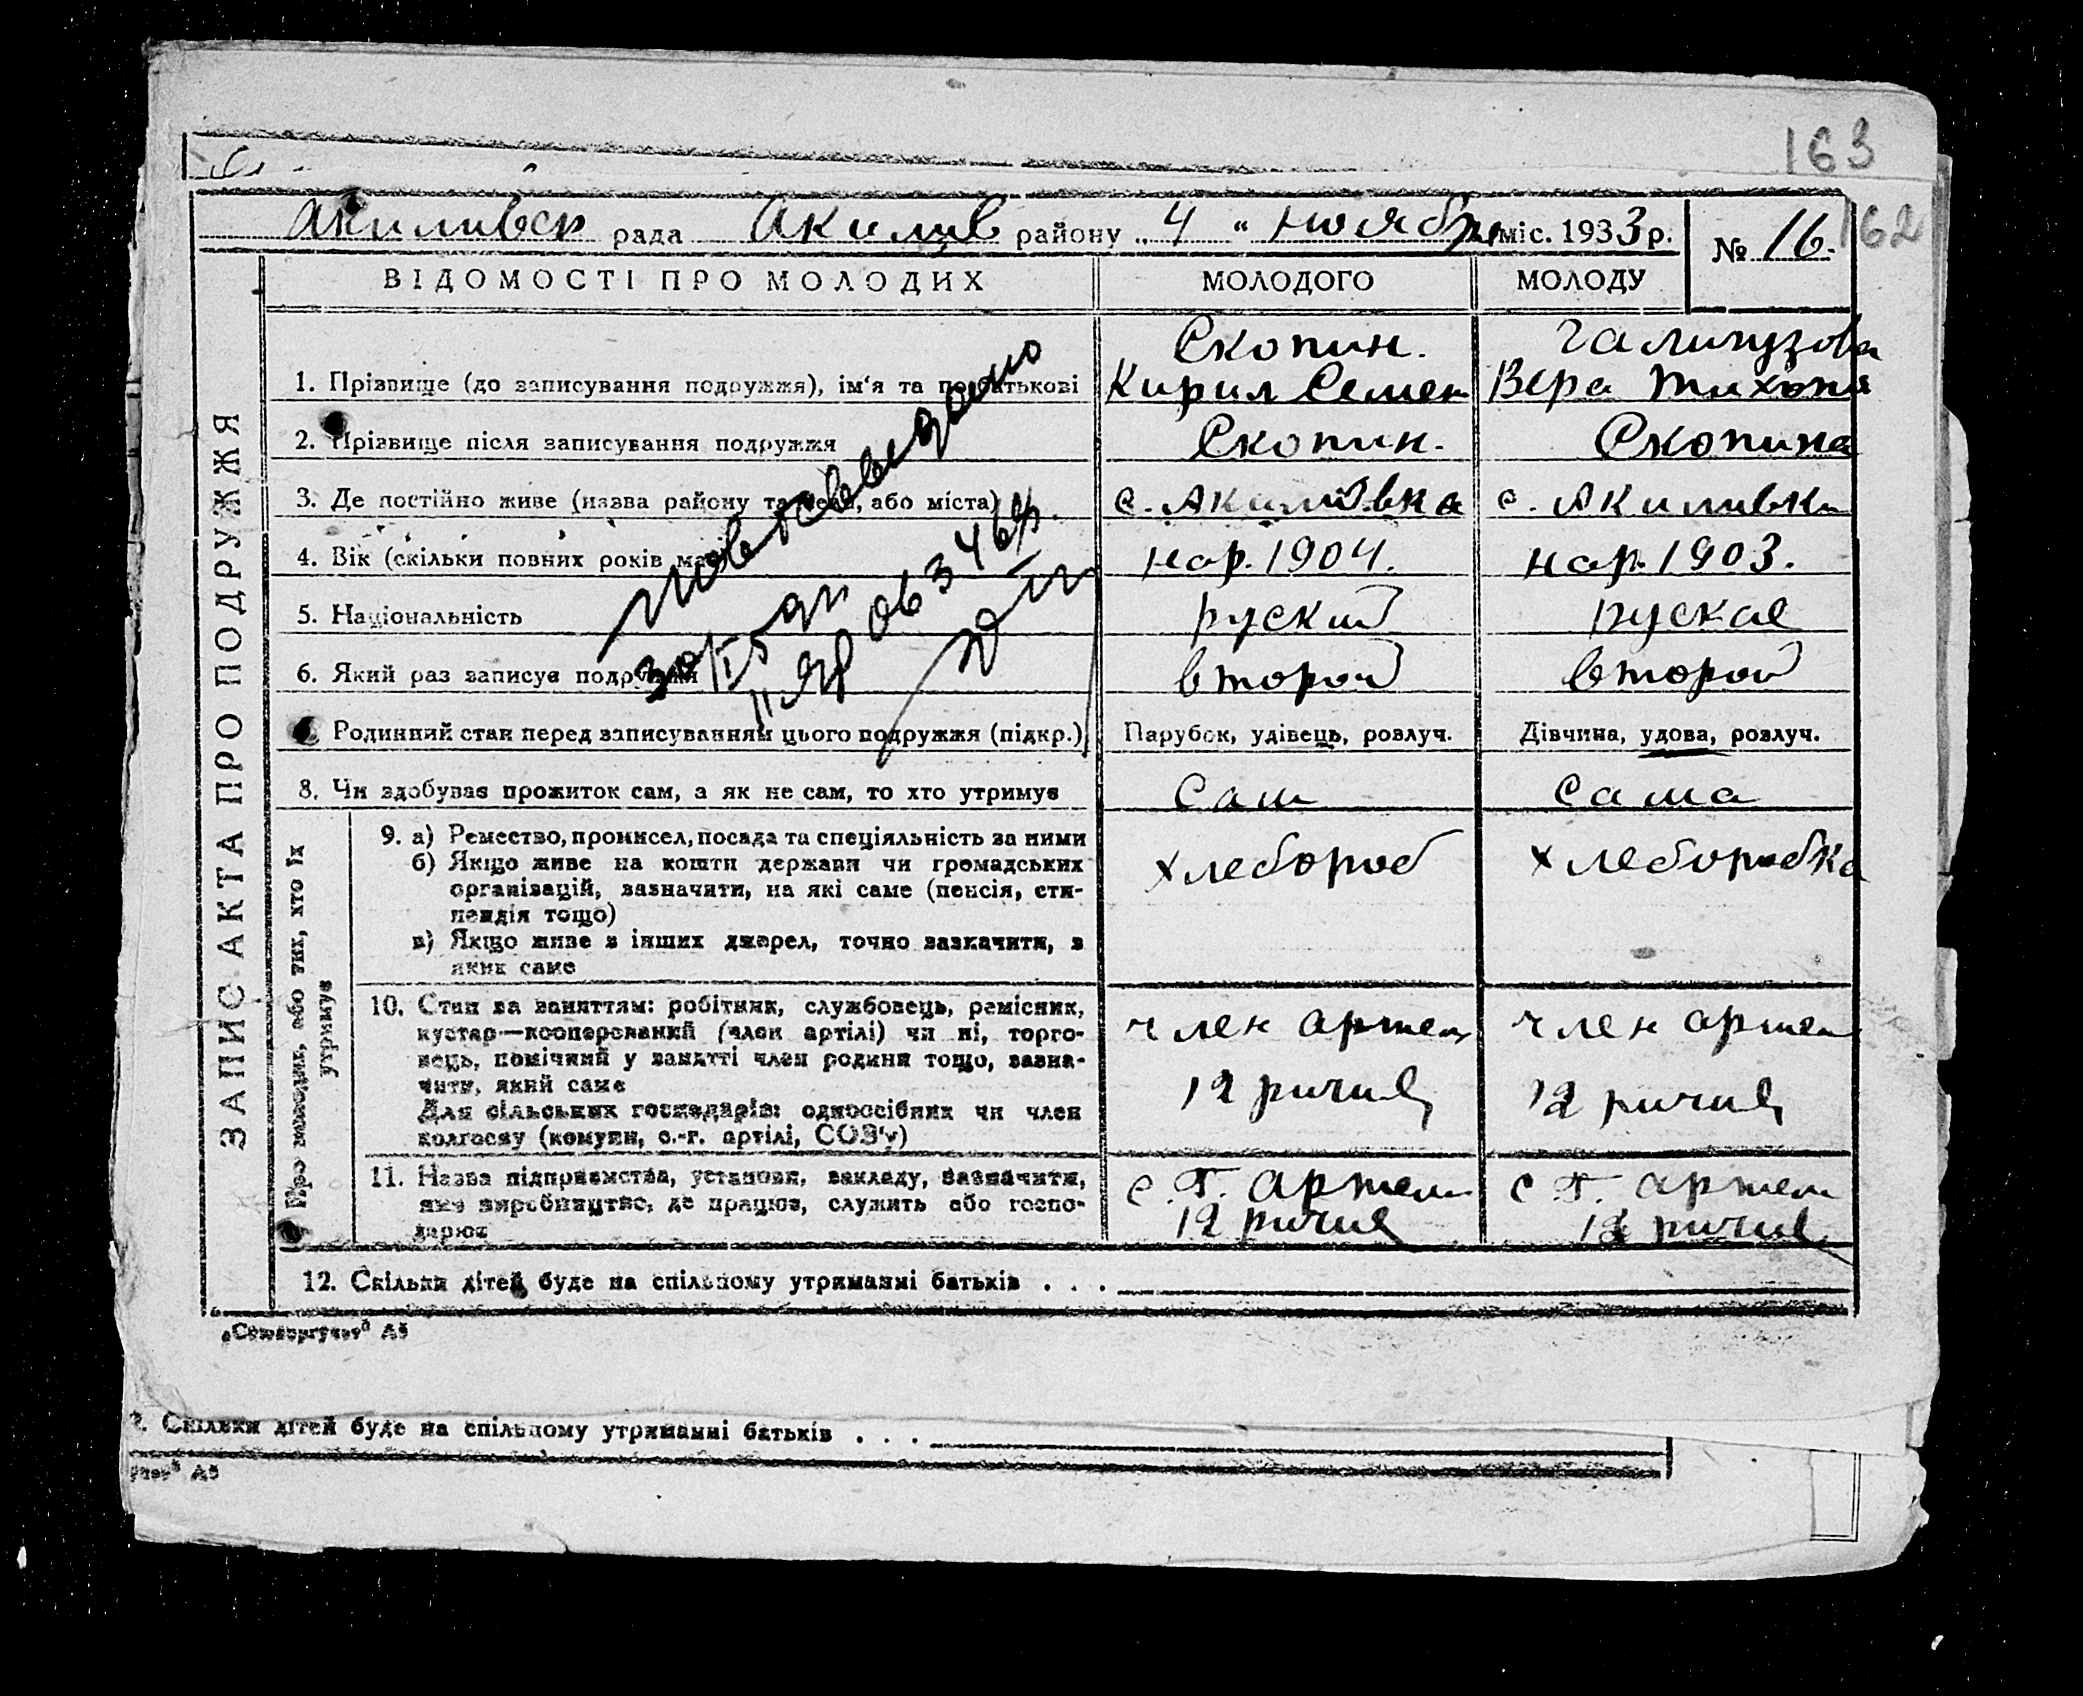 163
162
Акимивск рада Акимив району „ 4 “ ноября міс. 1933 р. № 16.
ВІДОМОСТІ ПРО МОЛОДИХ МОЛОДОГО МОЛОДУ
ЗАПИС АКТА ПРО ПОДРУЖЖЯ
Скопин. 
1. Прізвище (до записування подружжя), ім'я та по батькові Кирил Семен Вера Тихоня
2. Прізвище після записування подружжя Скопин. Скопина
3. Де постійно живе (назва району та села, або міста) с. Акимовка с. Акимивка
4. Вік (скільки повних років має) нар. 1904. нар. 1903.
5. Національність руский руская
6. Який раз записує подружжя второй второй
Родинний стан перед записуванням цього подружжя (підкр.) Парубок, удівець, розлуч. Дівчина, удова, розлуч.
8. Чи здобував прожиток сам, а як не сам, то хто утримує сам сама
Про молодих, або тих, хто їх
утримує
9. а) Ремество, промисел, посада та спеціяльність за ними хлебороб хлеборобка
б) Якщо живе на кошти держави чи громадських
організацій, зазначити, на які саме (пенсія, сти-
пендія тощо)
в) Якщо живе з інших джерел, точно зазначити, з
яких саме
10. Стан за заняттям: робітник, службовець, ремісник,
кустар—кооперований (член артілі) чи ні, торго- член артели член артели
вець, помічний у занятті член родини тощо, зазна-
чити, який саме 12 ричив 12 ричив
Для сільських господарів: одноосібник чи член
колгоспу (комуни, с.-г. артілі, СОЗ'у)
11. Назва підприємства, установи, закладу, зазначити, с. г. артели с. г. артели
яке виробництво, де працює, служить або госпо- 12 ричив 12 ричив
дарює
12. Скільки дітей буде на спільному утриманні батьків . . .
„Союзоргучет“ А5
2. Скільки дітей буде на спільному утриманні батьків . . .
учет“ А5